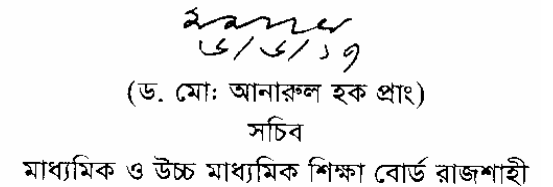 ৬/৬/১৭
(ড. মো: আনারুল হক প্রাং)
সচিব
মাধ্যমিক ও উচ্চ মাধ্যমিক শিক্ষা বোর্ড রাজশাহী